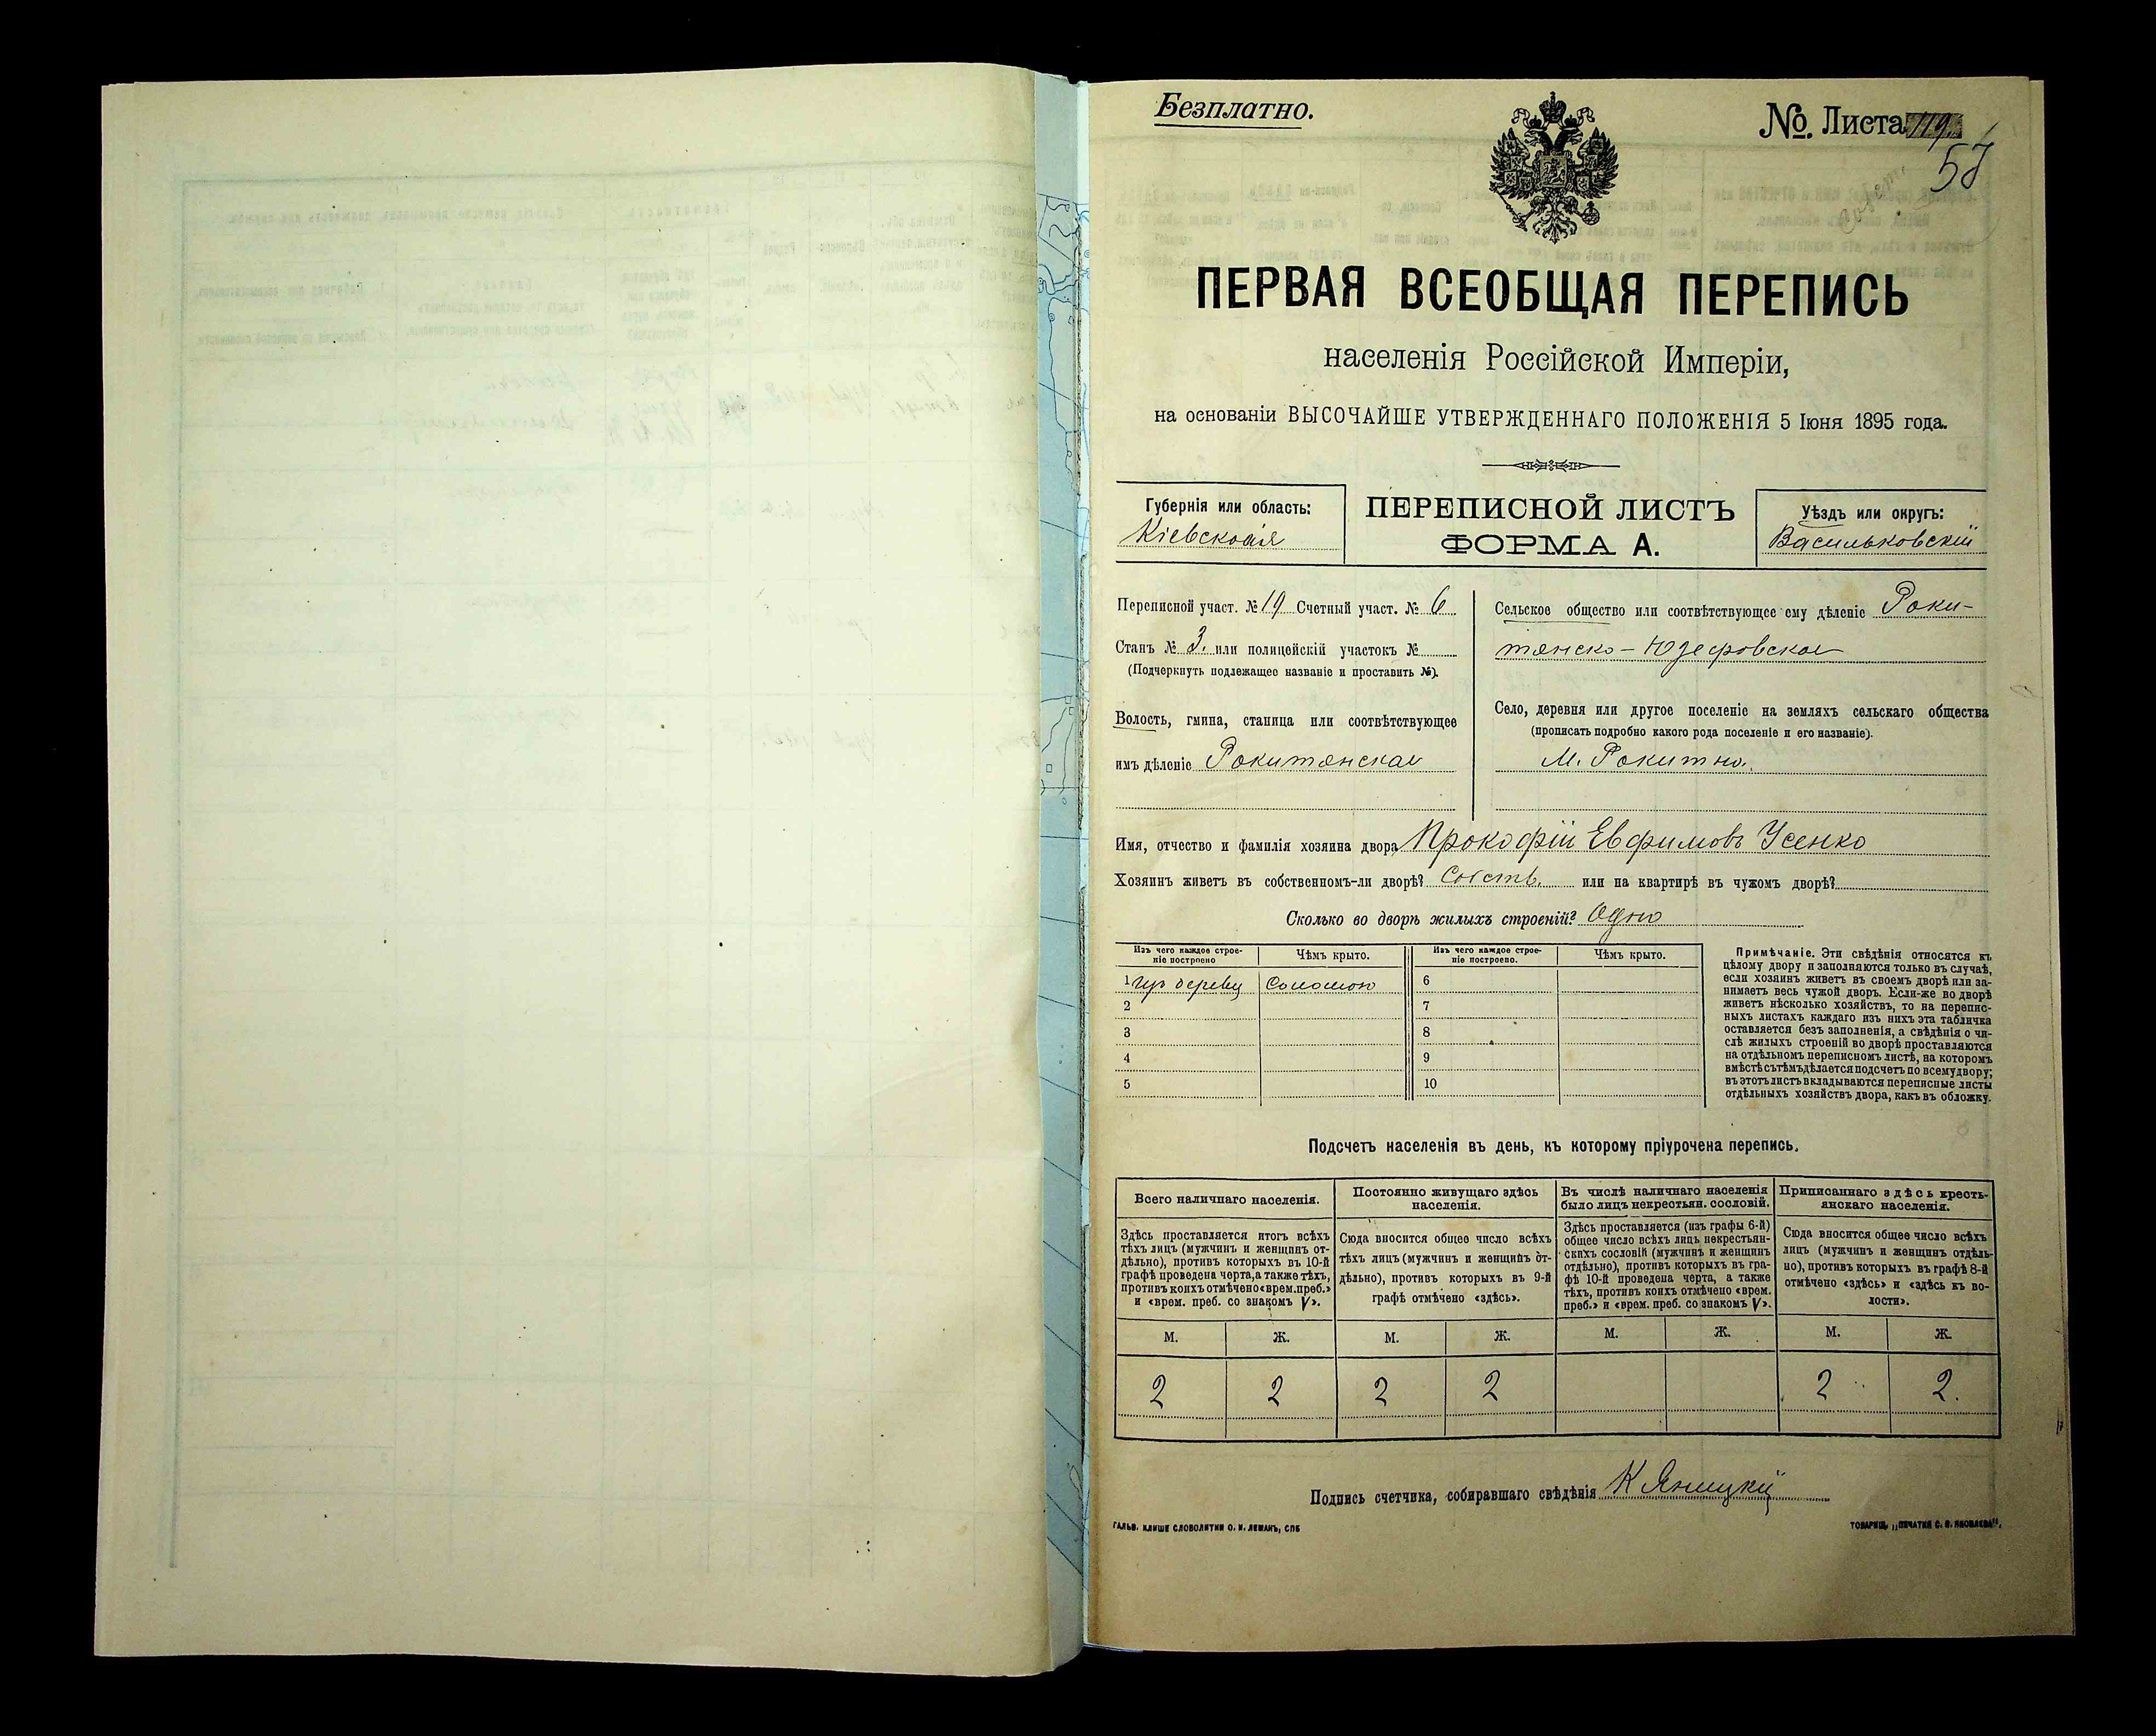 Безплатно.
№. Листа 119.
57
ПЕРВАЯ ВСЕОБЩАЯ ПЕРЕПИСЬ
населенія Россійской Имперіи,
на основаніи ВЫСОЧАЙШЕ УТВЕРЖДЕННАГО ПОЛОЖЕНІЯ 5 Іюня 1895 года.
Губернія или область:
Кіевская
ПЕРЕПИСНОЙ ЛИСТЪ
ФОРМА А.
Уѣздъ или округъ:
Васильковскій
Переписной участ. № 19 Счетный участ. № 6
Станъ № 3. или полицейскій участокъ №
(Подчеркнуть подлежащее названіе и проставить №).
Волость, гмина, станица или соотвѣтствующее
имъ дѣленіе Рокитянская
Сельское общество или соотвѣтствующее ему дѣленіе Роки-
тянско-Юзефовское
Село, деревня или другое поселеніе на земляхъ сельскаго общества
(прописать подробно какого рода поселеніе и его названіе).
М. Рокитно.
Имя, отчество и фамилія хозяина двора Прокофій Евфимовъ Усенко
Хозяинъ живетъ въ собственномъ-ли дворѣ? Собств. или на квартирѣ въ чужомъ дворѣ?
Сколько во дворѣ жилыхъ строеній? Одно
Изъ чего каждое строе-
ніе построено
Чѣмъ крыто.
Изъ чего каждое строе-
ніе построено.
Чѣмъ крыто.
1 изъ дерева Соломою 6
2 7
3 8
4 9
5 10
Примѣчаніе. Эти свѣдѣнія относятся къ
цѣлому двору и заполняются только въ случаѣ,
если хозяинъ живетъ въ своемъ дворѣ или за-
нимаетъ весь чужой дворъ. Если-же во дворѣ
живетъ нѣсколько хозяйствъ, то на перепис-
ныхъ листахъ каждаго изъ нихъ эта табличка
оставляется безъ заполненія, а свѣдѣнія о чи-
слѣ жилыхъ строеній во дворѣ проставляются
на отдѣльномъ переписномъ листѣ, на которомъ
вмѣстѣ съ тѣмъ дѣлается подсчетъ по всему двору;
въ этотъ листъ вкладываются переписные листы
отдѣльныхъ хозяйствъ двора, какъ въ обложку.
Подсчетъ населенія въ день, къ которому пріурочена перепись.
Всего наличнаго населенія.
Здѣсь проставляется итогъ всѣхъ
тѣхъ лицъ (мужчинъ и женщинъ от-
дѣльно), противъ которыхъ въ 10-й
графѣ проведена черта, а также тѣхъ,
противъ коихъ отмѣчено «врем. преб.»
и «врем. преб. со знакомъ V».
Постоянно живущаго здѣсь
населенія.
Сюда вносится общее число всѣхъ
тѣхъ лицъ (мужчинъ и женщинъ от-
дѣльно), противъ которыхъ въ 9-й
графѣ отмѣчено «здѣсь».
Въ числѣ наличнаго населенія
было лицъ некрестьян. сословій.
Здѣсь проставляется (изъ графы 6-й)
общее число всѣхъ лицъ некрестьян-
скихъ сословій (мужчинъ и женщинъ
отдѣльно), противъ которыхъ въ гра-
фѣ 10-й проведена черта, а также
тѣхъ, противъ коихъ отмѣчено «врем.
преб.» и «врем. преб. со знакомъ V».
Приписаннаго здѣсь кресть-
янскаго населенія.
Сюда вносится общее число всѣхъ
лицъ (мужчинъ и женщинъ отдѣль-
но), противъ которыхъ въ графѣ 8-й
отмѣчено «здѣсь» и «здѣсь къ во-
лости».
М. Ж. М. Ж. М. Ж. М. Ж.
2 2 2 2 2 2.
Подпись счетчика, собиравшаго свѣдѣнія К Яницкій
ГАЛЬВ. КЛИШЕ СЛОВОЛИТНИ О. И. ЛЕМАНЪ, СПБ
ТОВАРИЩ. „ПЕЧАТНЯ С. П. ЯКОВЛЕВА".